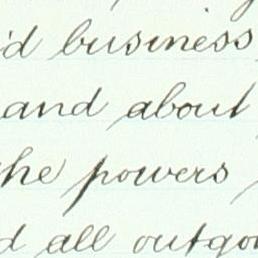 'd business
and about
the powers
d all outgo